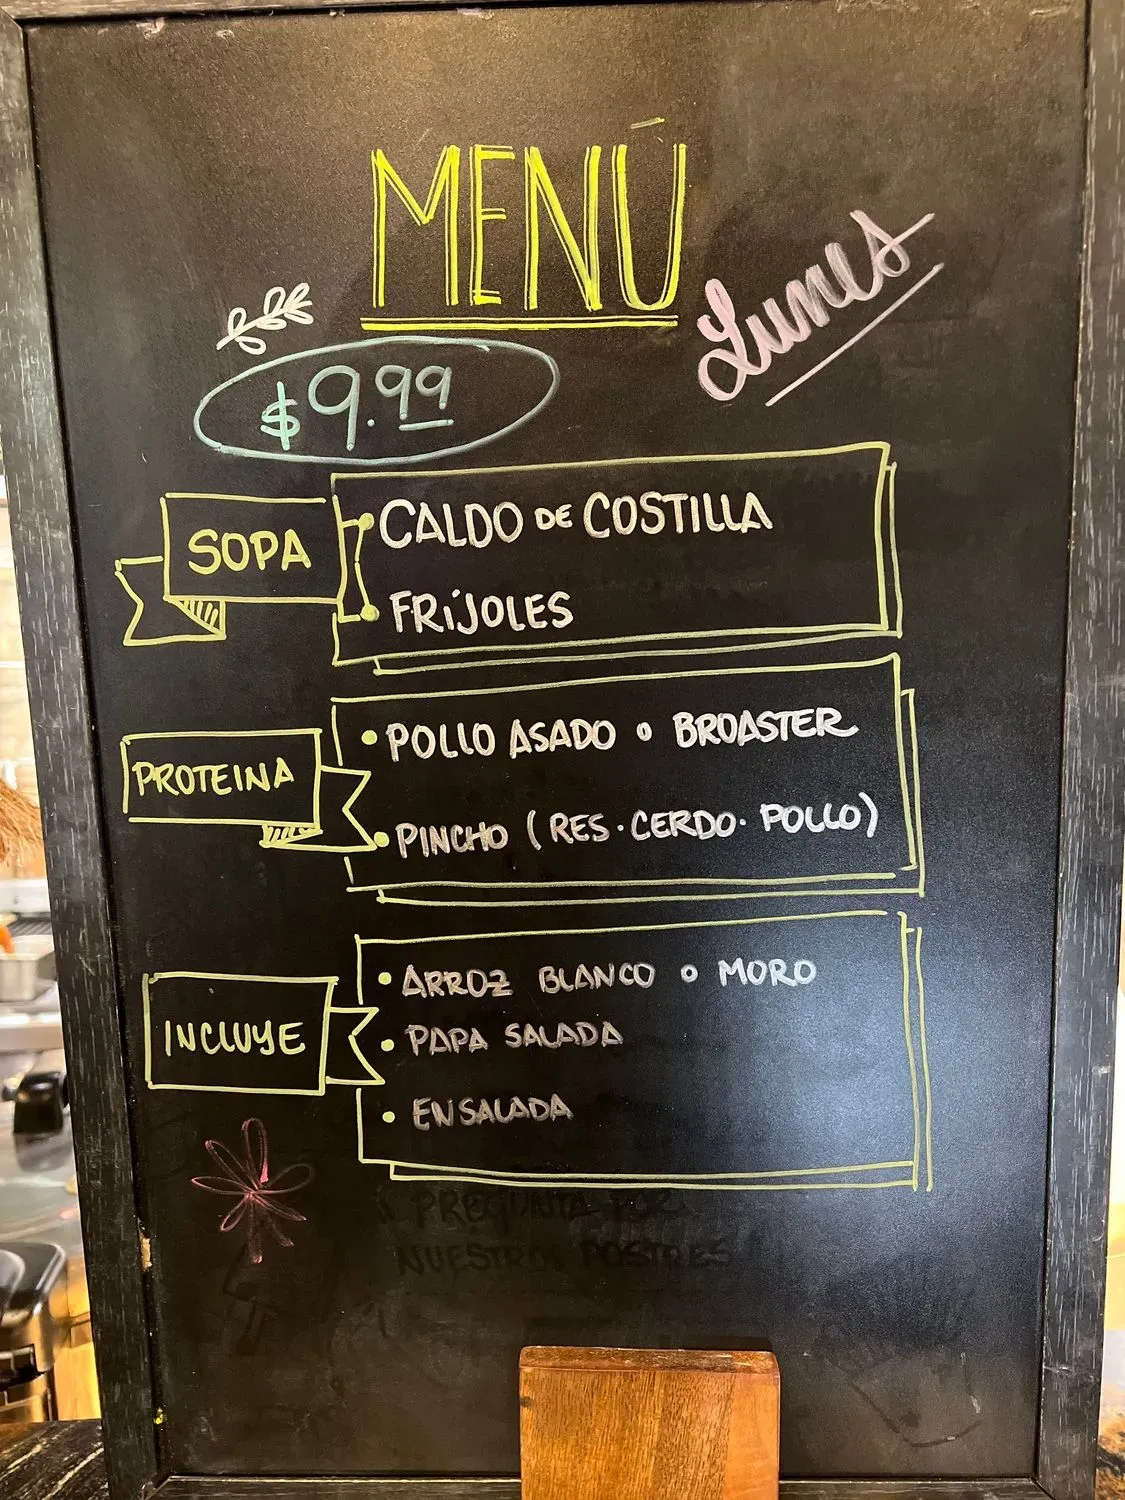 MENÚ
Lunes
$9.99
SOPA
CALDO DE COSTILLA
FRÍJOLES
PROTEINA
POLLO ASADO o BROASTER
PINCHO (RES · CERDO · POLLO)
INCLUYE
ARROZ BLANCO o MORO
PAPA SALADA
ENSALADA
PREGUNTA POR
NUESTROS POSTRES